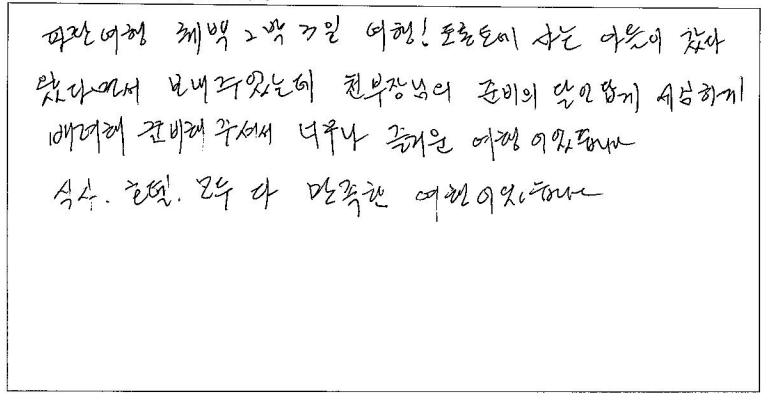 파란여행 퀘백 2박 3일 여행! 토론토에 사는 아들이 갔다
왔다면서 보내주었는데 천부장님의 준비의 달인답게 세심하게
배려해 준비해 주셔서 너무나 즐거운 여행이었습니다
식사. 호텔. 모두 다 만족한 여행이었습니다